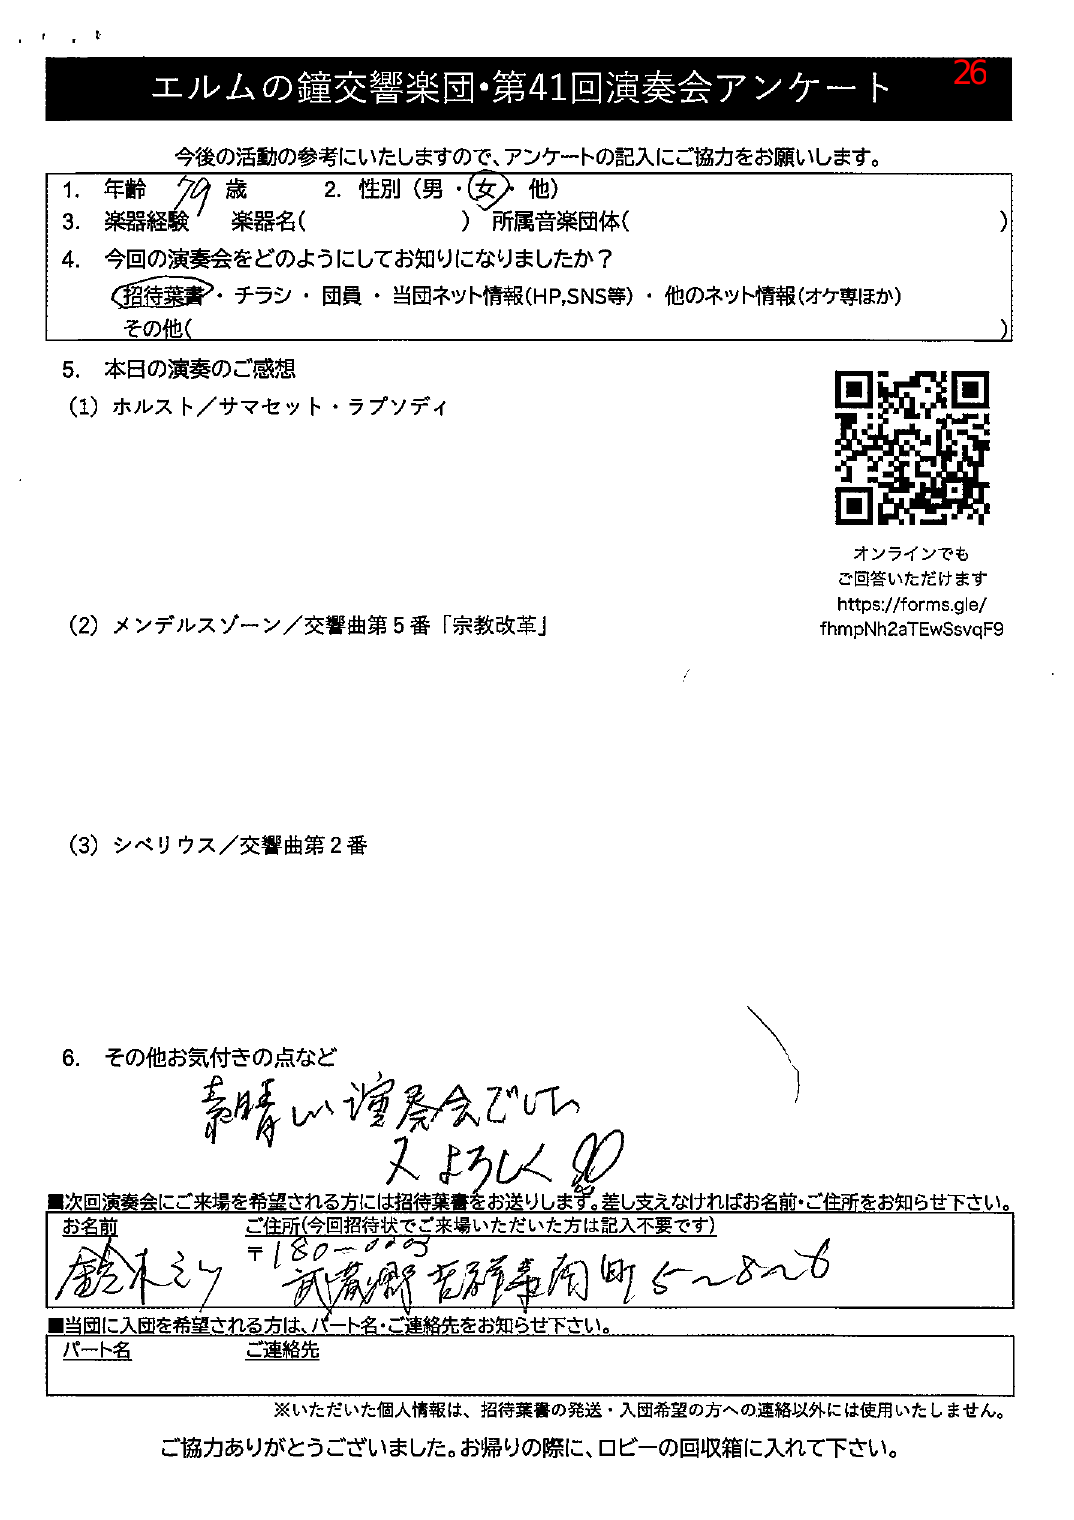 エルムの鐘交響楽団・第41回演奏会アンケート
26
今後の活動の参考にいたしますので、アンケートの記入にご協力をお願いします。
1. 年齢 79 歳 2. 性別（男・女・他）
3. 楽器経験 楽器名( ) 所属音楽団体( )
4. 今回の演奏会をどのようにしてお知りになりましたか？
招待葉書・チラシ・団員・当団ネット情報(HP,SNS等)・他のネット情報(オケ専ほか)
その他( )
5. 本日の演奏のご感想
(1) ホルスト／サマセット・ラプソディ
オンラインでも
ご回答いただけます
https://forms.gle/
fhmpNh2aTEwSsvqF9
(2) メンデルスゾーン／交響曲第５番「宗教改革」
(3) シベリウス／交響曲第２番
6. その他お気付きの点など
素晴しい演奏会でした
又よろしく
■次回演奏会にご来場を希望される方には招待葉書をお送りします。差し支えなければお名前・ご住所をお知らせ下さい。
お名前 ご住所(今回招待状でご来場いただいた方は記入不要です)
〒180-0003
鈴木 武蔵野 吉祥寺南町5〜8〜6
■当団に入団を希望される方は、パート名・ご連絡先をお知らせ下さい。
パート名 ご連絡先
※いただいた個人情報は、招待葉書の発送・入団希望の方への連絡以外には使用いたしません。
ご協力ありがとうございました。お帰りの際に、ロビーの回収箱に入れて下さい。